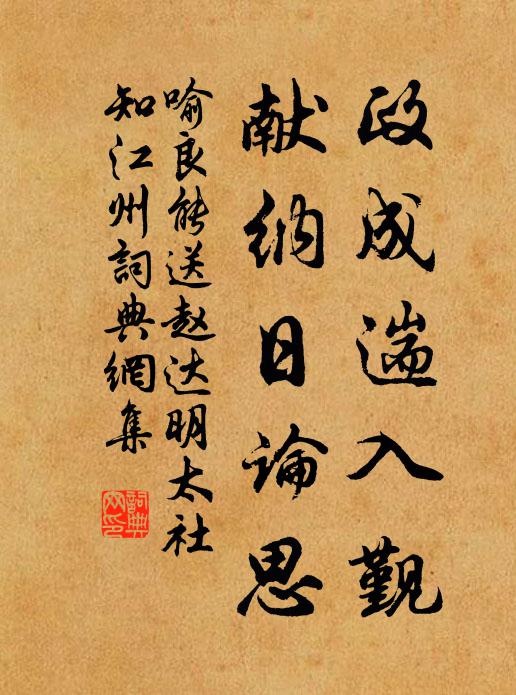 政成遄入觐
献纳日论思
喻良能送赵达明太社
知江州詞典網集
詞典網印